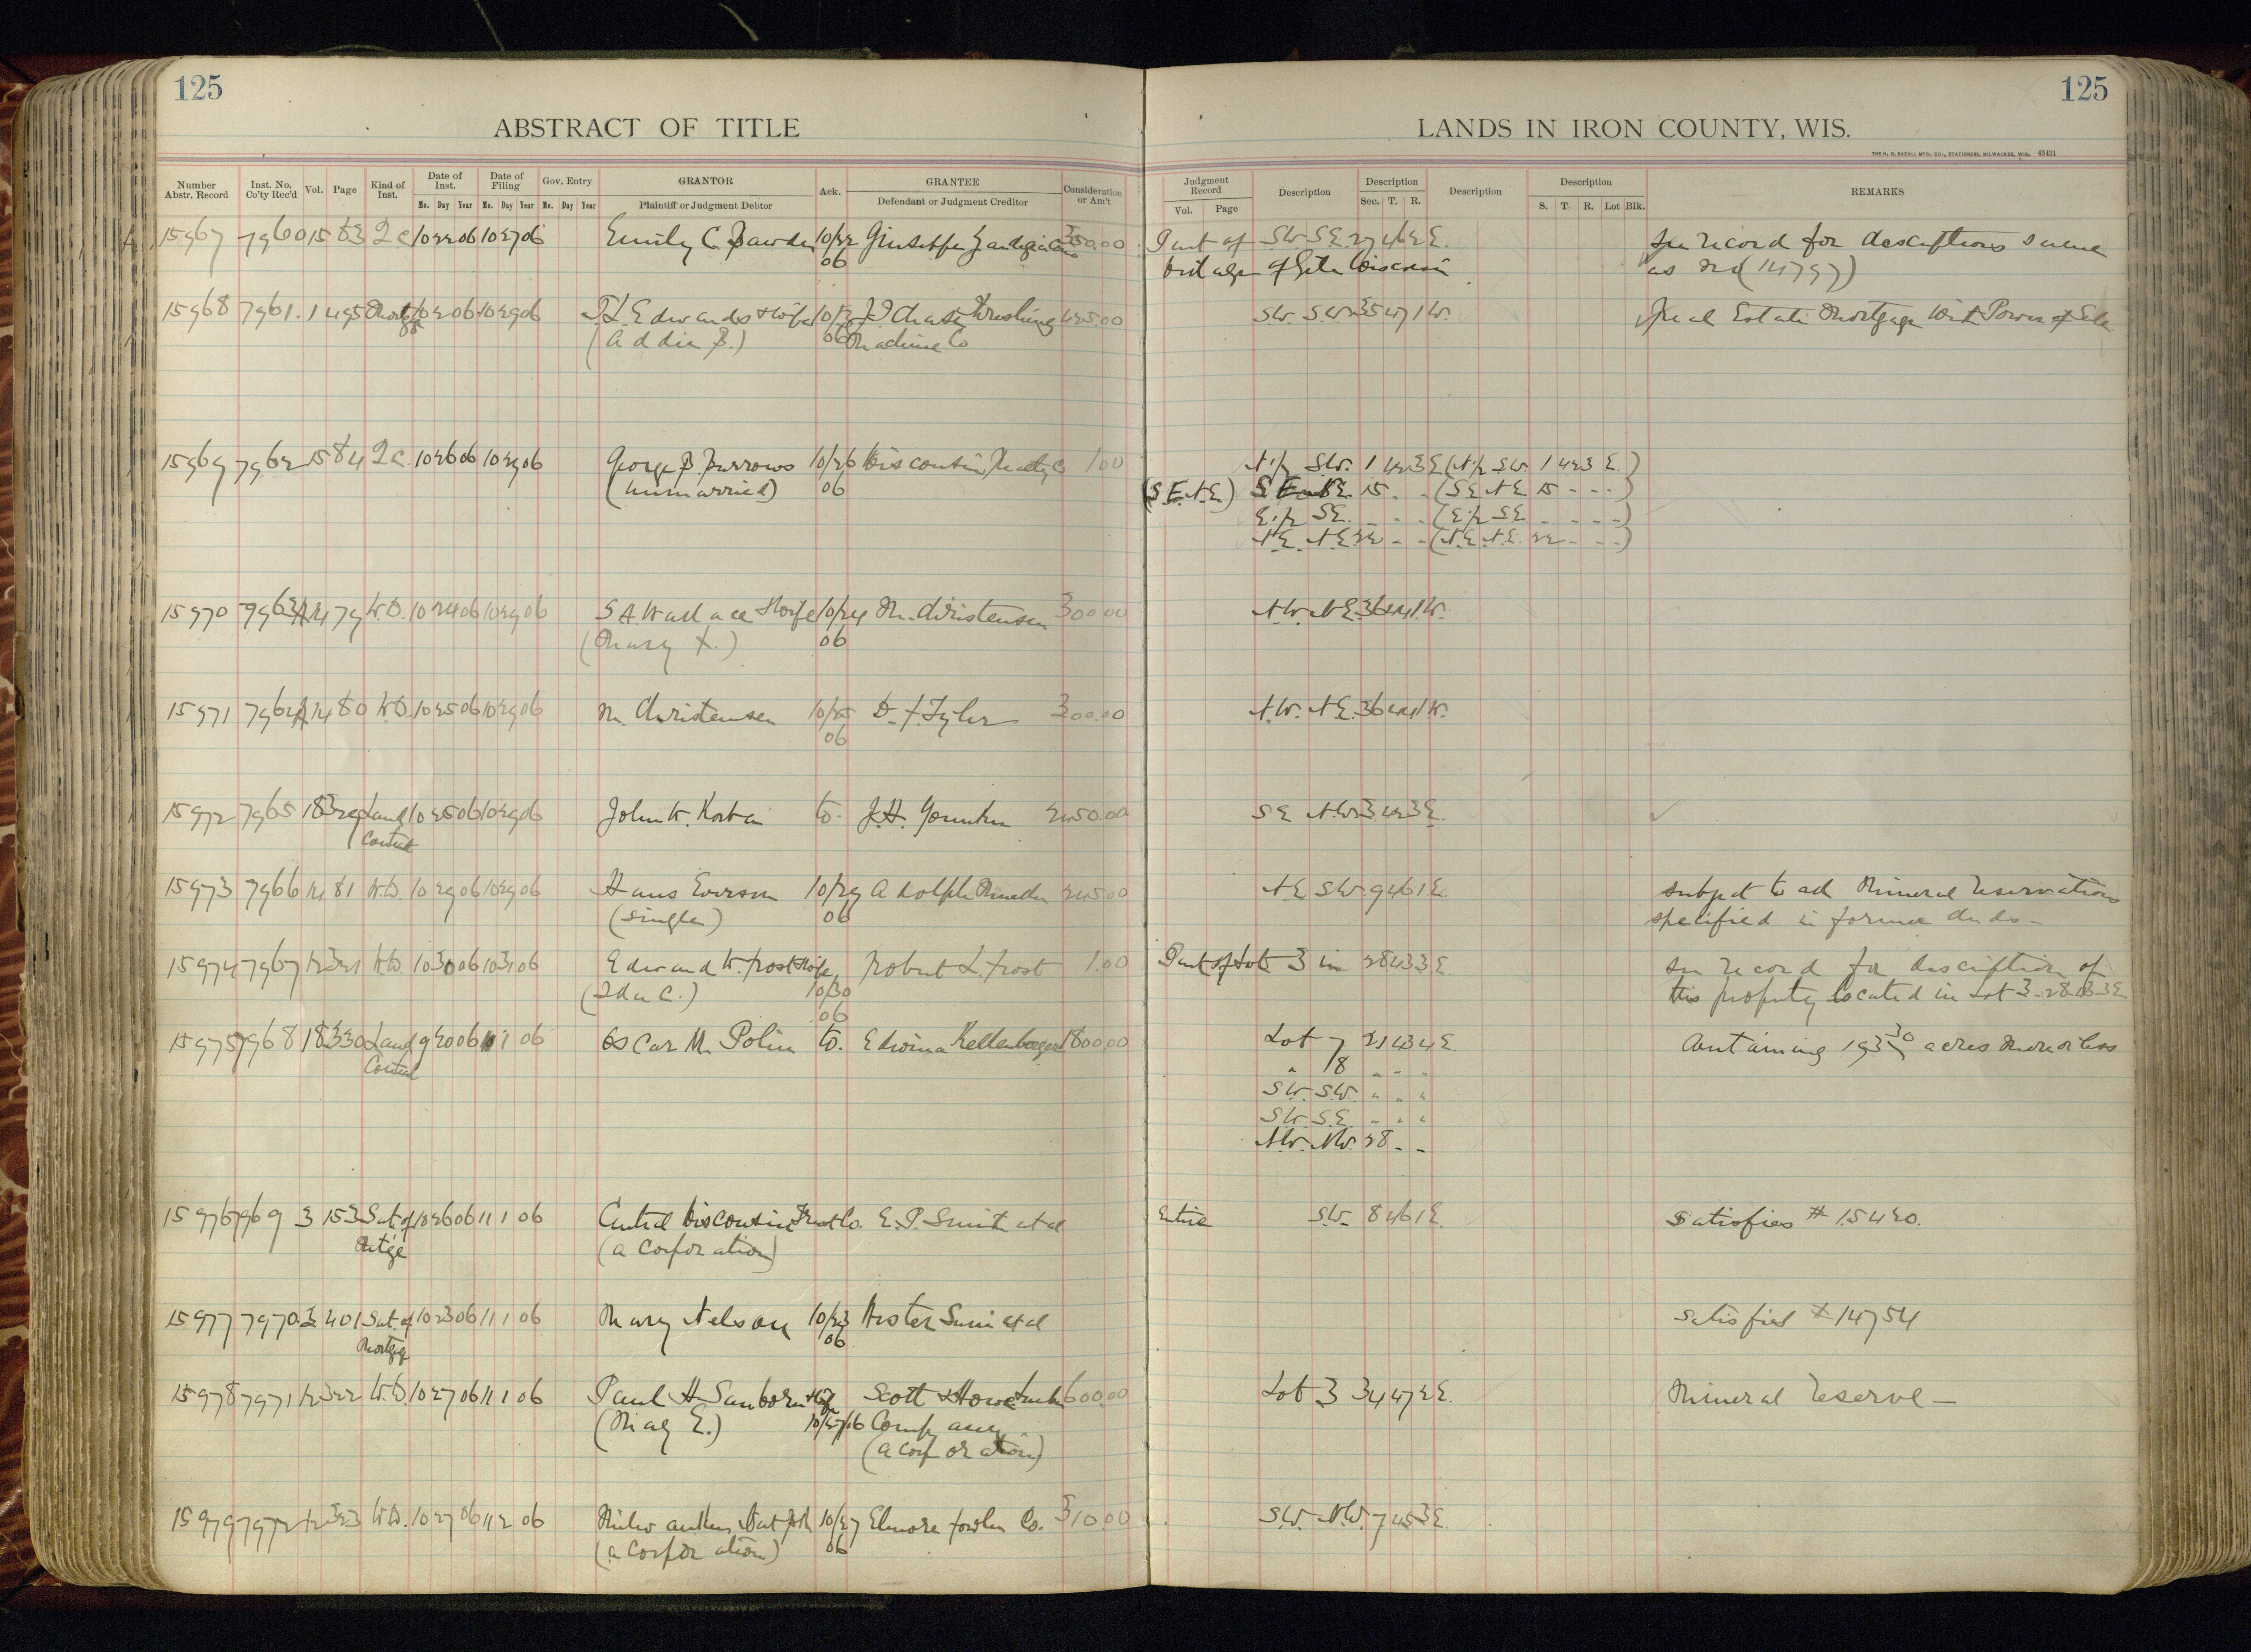 125
ABSTRACT OF TITLE
125
LANDS IN IRON COUNTY, WIS.
THE H. G. RAZALL MFG. CO., STATIONERS, MILWAUKEE, WIS. 65431
Number Abstr. Record Inst. No. Co'ty Rec'd Vol. Page Kind of Inst. Date of Inst. Date of Filing Gov. Entry GRANTOR Ack. GRANTEE Consideration or Am't Judgment Record Description Description Description Description REMARKS
Mo. Day Year Mo. Day Year Mo. Day Year Plaintiff or Judgment Debtor Defendant or Judgment Creditor Vol. Page Sec. T. R. S. T. R. Lot Blk.
15967 7960 15 583 Q C 10 22 06 10 27 06 Emily C. Bawden 10/22 350.00 Part of SW SE 27 46 2 E. See record for descriptions same
06 of Wisconsin as No (14797)
15968 7961 1 495 Mortgage 10 2 06 10 29 06 Edwards & wife J I Case Threshing 425.00 S.W. S.W. 35 47 1 W. Real Estate Mortgage With Power of Sale
(Addie B.) 06 Machine Co
15969 7962 15 84 Q C. 10 26 06 10 29 06 George B. Burrows 10/26 Wisconsin Realty Co 1.00 N1/2 S.W. 1 42 3 E (N1/2 S.W. 1 42 3 E.)
(unmarried) 06 (S.E.N.E.) S E N E. 15 - - (S E N E 15 - - -)
E1/2 S.E. - - - (E1/2 S.E. - - - -)
N.E. N.E. 22 - - (N.E. N.E. 22 - - -)
15970 7963 14 79 W.D. 10 24 06 10 29 06 S A Wallace & Wife 10/24 M. Christensen 300.00 N.W. N.E. 36 44 1 W.
(Mary F.) 06
15971 7964 14 80 W.D. 10 25 06 10 29 06 M. Christensen 10/25 D. F. Tyler 300.00 N.W. N.E. 36 44 1 W.
06
15972 7965 18 329 Land 10 25 06 10 29 06 John W. to J.H. 2450.00 S E N.W. 3 42 3 E.
Contract
15973 7966 14 81 W.D. 10 29 06 10 29 06 Hans Everson 10/29 Adolph 245.00 N E S W 9 46 1 E. subject to all Mineral reservations
(single) 06 specified in former deeds -
15974 7967 12 321 W.D. 10 30 06 10 31 06 Edward W. Frost & Wife, Robert L. Frost 1.00 Part of Lot 3 in 28 43 3 E. See record for description of
(Ida C.) 10/30 this property located in Lot 3-28-43-3E
06
15975 7968 18 330 Land 9 20 06 11 1 06 Oscar M. Polin to. Edwina Kellenberger 1800.00 Lot 7 21 43 4 E. Containing 193 30 acres more or less
Contract " 18 " " "
S.W. S.W. " " "
S.W. S.E. " " "
N.W. N.W. 28 - -
15976 7969 3 153 Sat. of 10 26 06 11 1 06 Central Wisconsin Trust Co. E. P. Smith et al Entire S.W. 8 46 1 E. Satisfies # 15420.
Mtge (a Corporation)
15977 7970 3 401 Sat. of 10 23 06 11 1 06 Mary Nelson 10/23 et al Satisfies # 14754
Mortgage 06
15978 7971 12 322 W.D. 10 27 06 11 1 06 Paul H Sanborn & Wife Scott & Howe Lumber 600.00 Lot 3 34 47 2 E. Mineral reserve -
(May E.) 10/27/06 Company
(a corporation)
15979 7972 12 323 W.D. 10 27 06 11 2 06 Milwaukee 10/27 Elmore Fowler Co. 310.00 S.W. N.W. 7 45 3 E.
(a Corporation) 06